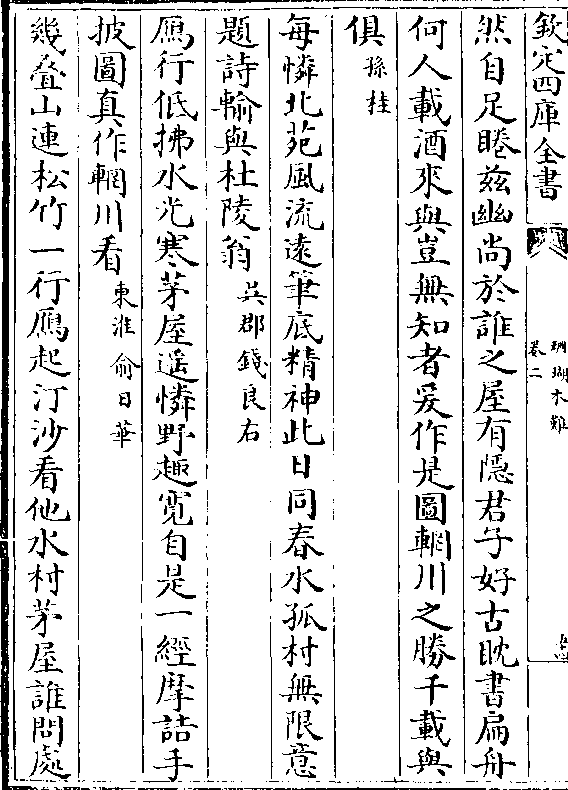 欽定四庫全書
珊瑚木難
卷二
然自足睠兹幽尚於誰之屋有隱君子好古眈書扁舟
何人載酒來與豈無知者爰作是圖輞川之勝千載與
俱孫桂
每憐北苑風流遠筆底精神此日同春水孤村無限意
題詩輸與杜陵翁吳郡錢良右
鴈行低拂水光寒茅屋遥憐野趣寛自是一經摩詰手
披圖真作輞川看東淮俞日華
幾叠山連松竹一行鴈起汀沙看他水村茅屋誰問處